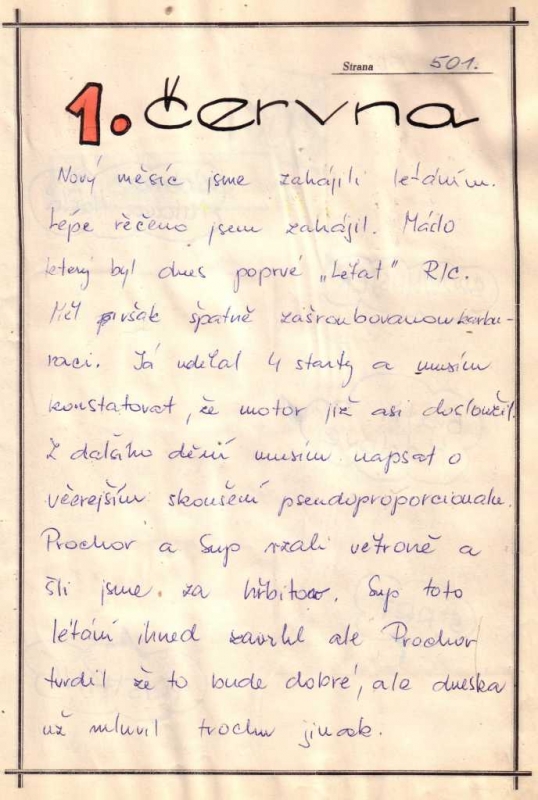 Strana 501.
1. června
Nový měsíc jsme zahájili létáním.
Lépe řěčeno jsem zahájil. Máclo
který byl dnes poprvé „létat" R/c.
Měl však špatně zašroubovanou karbu-
raci. Já udělal 4 starty a musím
konstatovat, že motor již asi dosloužil.
Z dalšího dění musím napsat o
včerejším skoušení pseudoproporcionalu.
Prochor a Sup vzali větroně a
šli jsme za hřbitov. Sup toto
létání ihned zavrhl ale Prochor
tvrdil že to bude dobré, ale dneska
už mluvil trochu jinak.